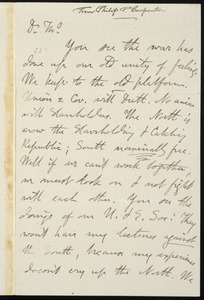 from Philip P. Carpenter
Dr. Thos.
You see the war has
done up our old unity of feeling.
We keep to the old platform.
Union & Gov. with Death. No union
with slaveholders. The North is
now the slaveholding & catching
Republic; South nominally free.
Well if we can't work together
we must look on & not fight
with each other. You on the
doings of our U. & E. Soc: They
won't have my lectures against
the South, because my experience
doesn't cry up the North. We